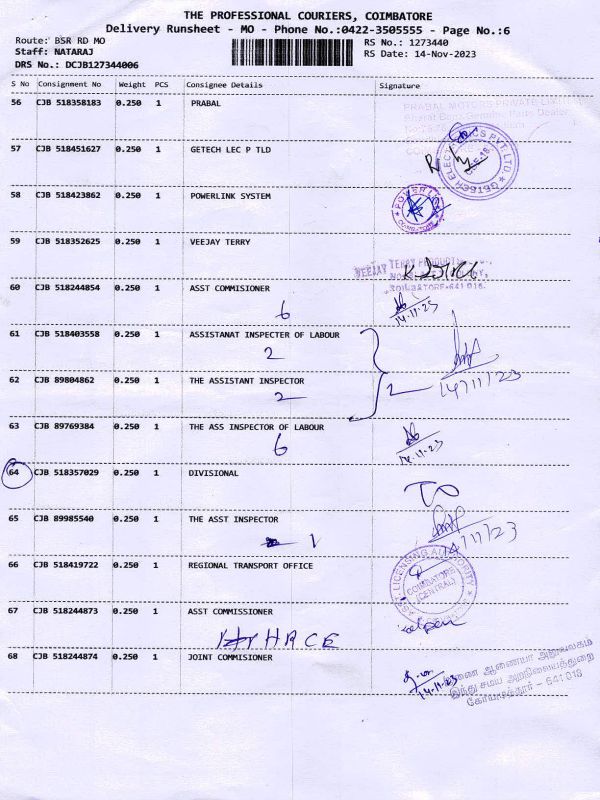 THE PROFESSIONAL COURIERS, COIMBATORE
Delivery Runsheet - MO - Phone No.:0422-3505555 - Page No.:6
Route: BSR RD MO
RS No.: 1273440
Staff: NATARAJ
RS Date: 14-Nov-2023
DRS No.: DCJB127344006
S No Consignment No Weight PCS Consignee Details Signature
56 CJB 518358183 0.250 1 PRABAL
PRABAL MOTORS PRIVATE
57 CJB 518451627 0.250 1 GETECH LEC P TLD
58 CJB 518423862 0.250 1 POWERLINK SYSTEM
59 CJB 518352625 0.250 1 VEEJAY TERRY
VEEJAY TERRY
COIMBATORE-641 018.
60 CJB 518244854 0.250 1 ASST COMMISIONER
6
14.11.23
61 CJB 518403558 0.250 1 ASSISTANAT INSPECTER OF LABOUR
2
62 CJB 89804862 0.250 1 THE ASSISTANT INSPECTOR
2
2
14/11/23
63 CJB 89769384 0.250 1 THE ASS INSPECTOR OF LABOUR
6
14.11.23
64 CJB 518357029 0.250 1 DIVISIONAL
TO
65 CJB 89985540 0.250 1 THE ASST INSPECTOR
1
14/11/23
66 CJB 518419722 0.250 1 REGIONAL TRANSPORT OFFICE
ASST. LICENSING AUTHORITY
COIMBATORE
(CENTRAL)
67 CJB 518244873 0.250 1 ASST COMMISSIONER
HACE
68 CJB 518244874 0.250 1 JOINT COMMISIONER
14.11.23
ஆணையர் அலுவலகம்
இந்து சமய அறநிலையத்துறை
கோயமுத்தூர் - 641 018